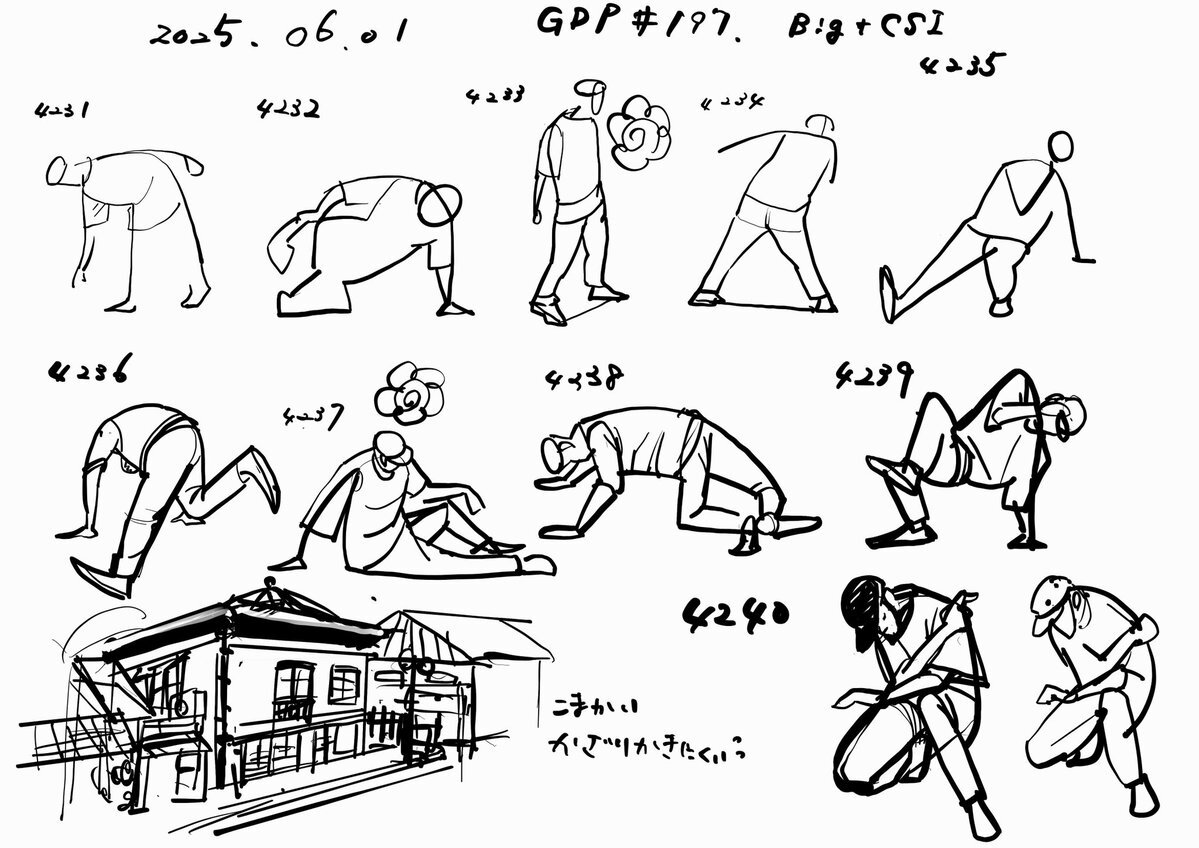 2025.06.01
GDP #197. Big + CSI
4231
4232
4233
4234
4235
4236
4237
4238
4239
4240
こまかい
かざりかきにくいっ